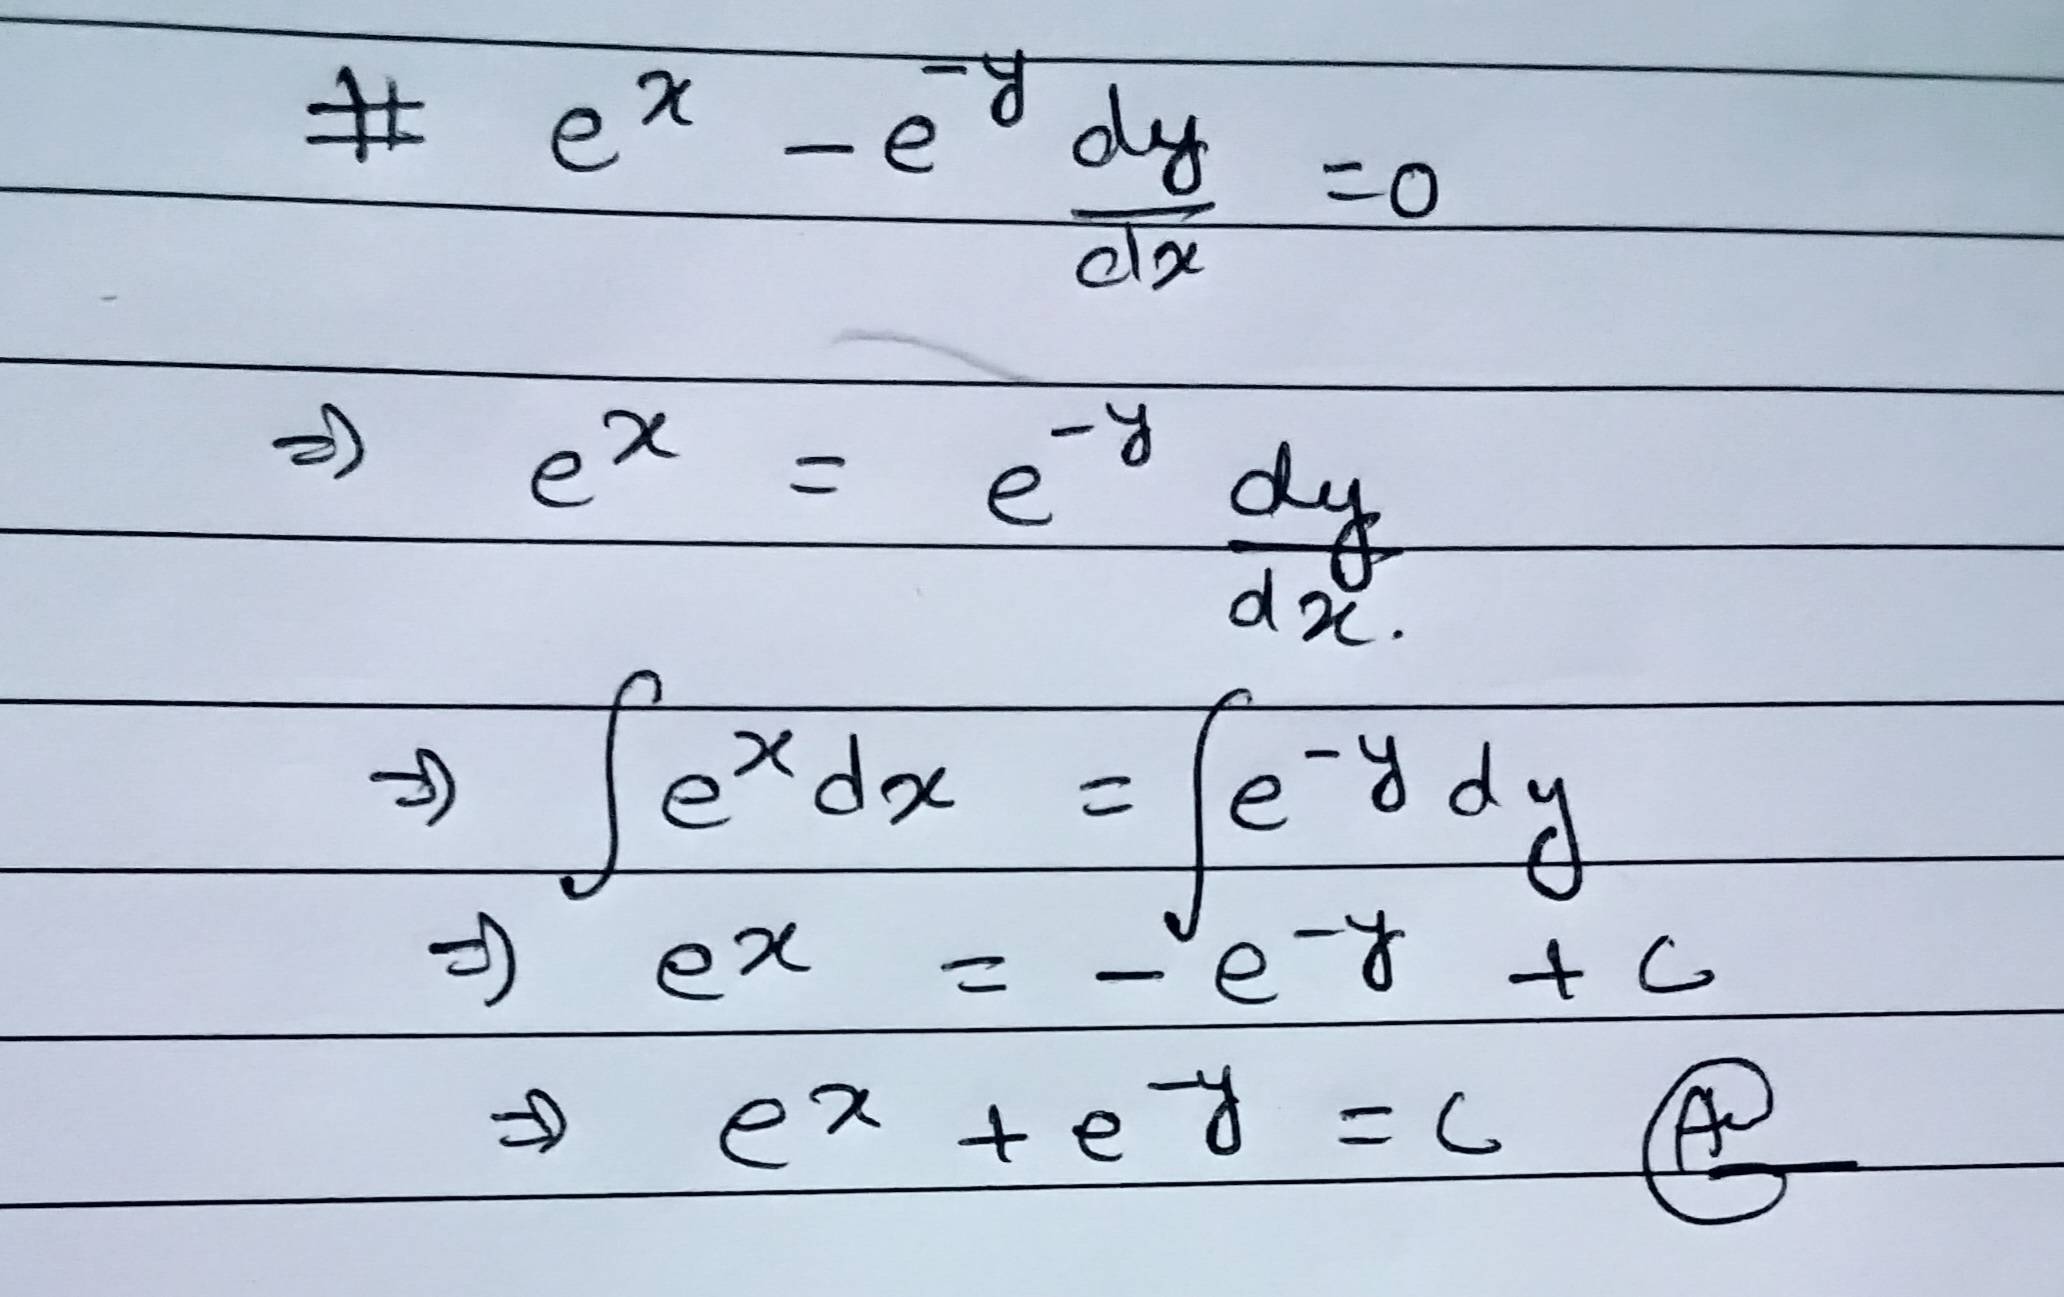 # e^x - e^-y dy/dx = 0
⇒ e^x = e^-y dy/dx.
⇒ ∫e^x dx = ∫e^-y dy
⇒ e^x = -e^-y + c
⇒ e^x + e^-y = c